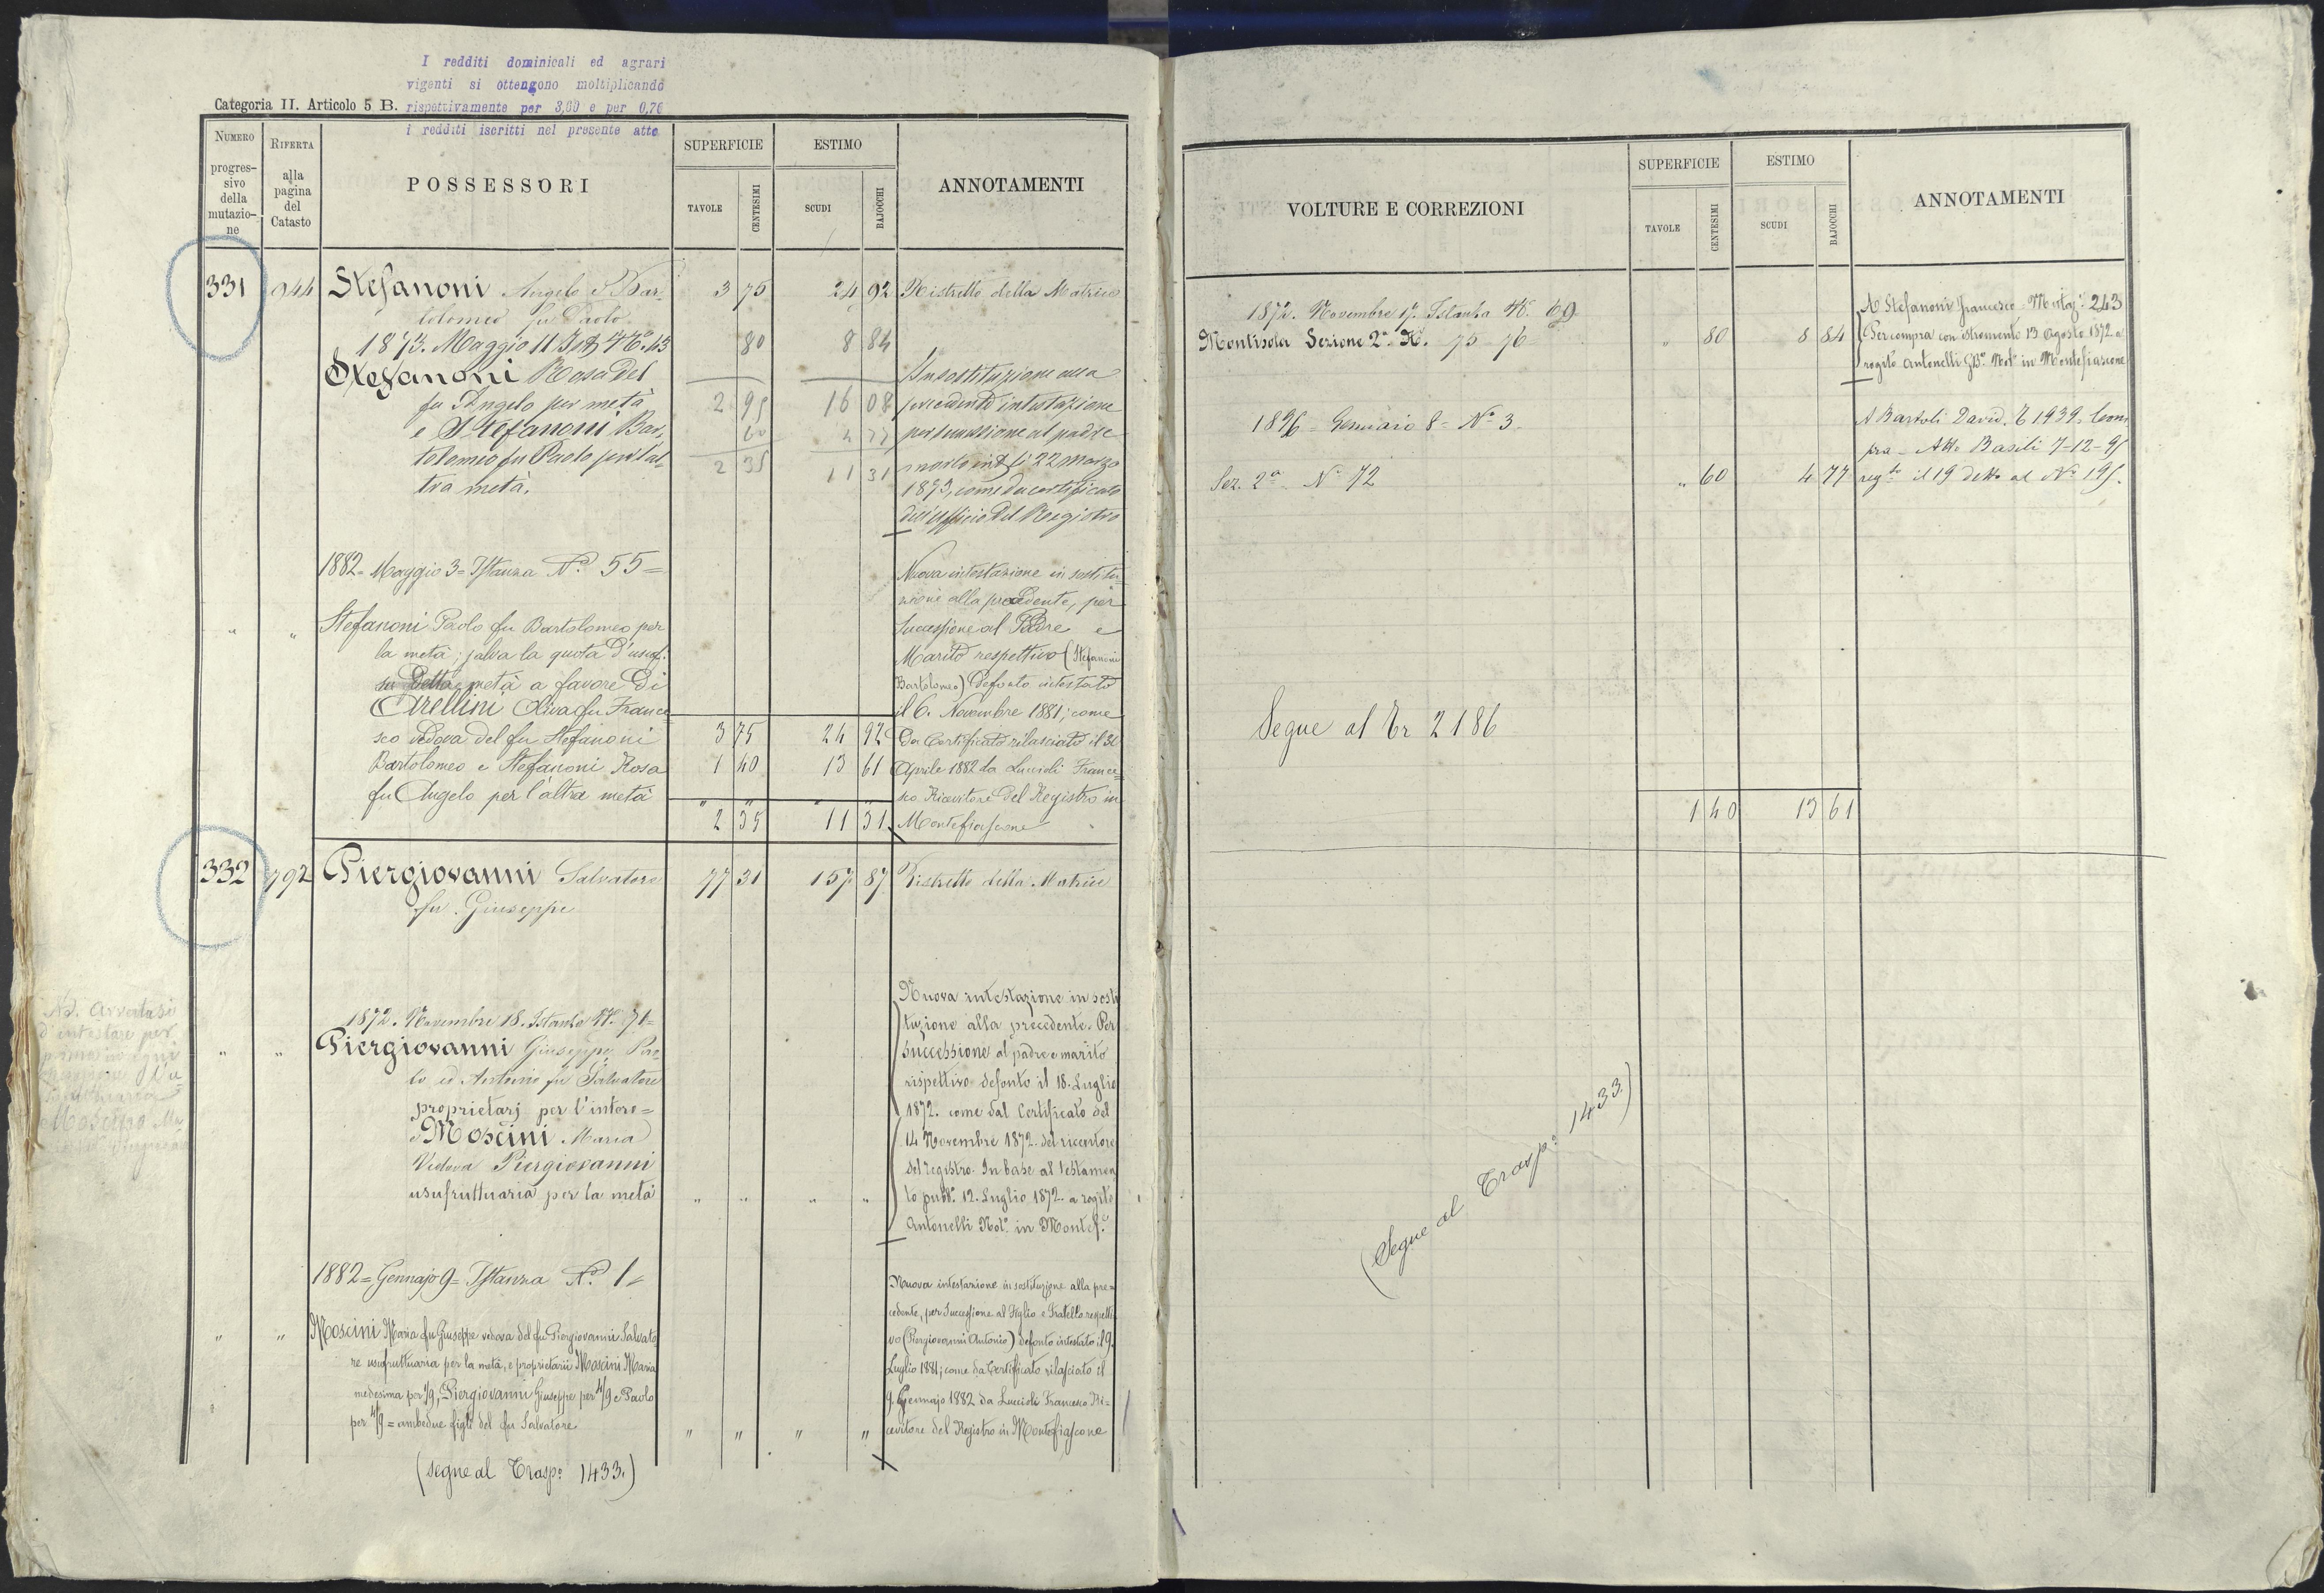 I redditi dominicali ed agrari
vigenti si ottengono moltiplicando
rispettivamente per 3,60 e per 0,76
i redditi iscritti nel presente atto
Categoria II. Articolo 5 B.
NUMERO progres-sivo della mutazio-ne
RIFERTA alla pagina del Catasto
POSSESSORI
SUPERFICIE
TAVOLE
CENTESIMI
ESTIMO
SCUDI
BAJOCCHI
ANNOTAMENTI
331 944 Stefanoni Angelo e Bar-
tolomeo fu Paolo
3 75 24 92 Ristretto della Matrice
1873. Maggio 11 Ist. N.º 43
80 8 84
Stefanoni Rosa del
fu Angelo per metà
e Stefanoni Bar-
tolomeo fu Paolo per l'al-
tra metà.
2 95 16 08
60 4 77
2 35 11 31
In sostituzione alla
precedente intestazione
per successione al padre
morto li 22 marzo
1873, come da certificato
dell'ufficio del Registro
1882 = Maggio 3 = Istanza N.º 55 =
" " Stefanoni Paolo fu Bartolomeo per
la metà; salva la quota d'usuf.
su detta metà a favore di
Cirellini Oliva fu France
sco vedova del fu Stefanoni
Bartolomeo e Stefanoni Rosa
fu Angelo per l'altra metà
3 75 24 92
1 40 13 61
" " " "
2 35 11 31
Nuova intestazione in sostitu-
zione alla precedente, per
Successione al Padre e
Marito respettivo (Stefanoni
Bartolomeo) defonto intestato
il 6. Novembre 1881; come
da Certificato rilasciato il 30
Aprile 1882 da Luccioli France-
sco Ricevitore del Registro in
Montefiascone
332 792 Piergiovanni Salvatore
fu Giuseppe
77 31 157 87 Ristretto della Matrice
N.B. Avvertasi
d'intestare per
Moscino
1872. Novembre 18. Istanza N.º 71 =
" " Piergiovanni Giuseppe Pao-
lo ed Antonio fu Salvatore
proprietarj per l'intero =
e Moscini Maria
Vedova Piergiovanni
usufruttuaria per la metà
" " " "
Nuova intestazione in sosti
tuzione alla precedente. Per
successione al padre e marito
rispettivo defonto il 18. Luglio
1872. come dal Certificato del
14 Novembre 1872. del ricevitore
del registro. In base al testamen
to pubb.º 12. Luglio 1872. a rogito
Antonelli Not.º in Montef.e
1882 = Gennajo 9 = Istanza N.º 1 =
" " Moscini Maria fu Giuseppe vedova del fu Piergiovanni Salvato
re usufruttuaria per la metà, e proprietarii Moscini Maria
medesima per 1/9, Piergiovanni Giuseppe per 4/9 e Paolo
per 4/9 = ambedue figli del fu Salvatore
" " " "
Nuova intestazione in sostituzione alla pre=
cedente, per Successione al Figlio e Fratello respetti
vo (Piergiovanni Antonio) defonto intestato il 9.
Luglio 1881; come da Certificato rilasciato il
9. Gennajo 1882 da Luccioli Francesco Ri=
cevitore del Registro in Montefiascone
(segue al Trasp.º 1433.)
VOLTURE E CORREZIONI
SUPERFICIE
TAVOLE
CENTESIMI
ESTIMO
SCUDI
BAJOCCHI
ANNOTAMENTI
1872. Novembre 17. Istanza N.º 69
Montisola Sezione 2.ª N.i 75 - 76 =
" 80 8 84
A Stefanoni Francesco = Mutaz.e 243
Per compra con istromento 13 Agosto 1872. a
rogito Antonelli GB.ª Not.º in Montefiascone
1896 = Gennaio 8 = N.º 3.
Sez. 2ª N.º 72
" 60 4 77
A Bartoli David. Tr 1939. Com
pra - Atto Basili 7-12-95
reg.to il 19 detto al N.º 195.
Segue al Tr 2186
1 40 13 61
(Segue al Trasp.º 1433.)